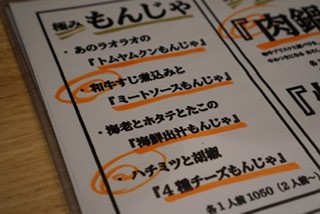 極み もんじゃ
・あのラオラオの
『トムヤムクンもんじゃ』
・和牛すじ煮込みと
『ミートソースもんじゃ』
・海老とホタテとたこの
『海鮮出汁もんじゃ』
・ハチミツと胡椒
『4種チーズもんじゃ』
各1人前1050(2人前〜)
『肉鍋